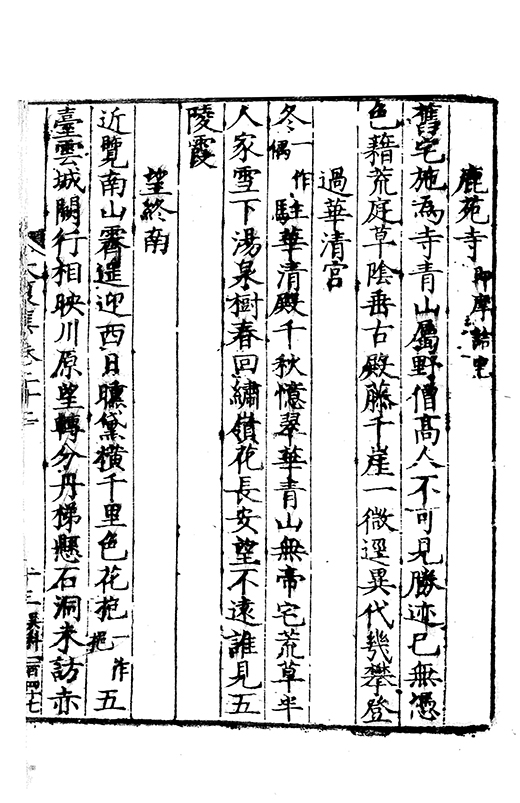 鹿苑寺即摩詰宅
舊宅施為寺青山屬野僧高人不可見勝迹已無憑
色籍荒庭草陰垂古殿藤千崖一微逕異代幾攀登
過華清宮
冬一作偶駐華清殿千秋憶翠華青山無帝宅荒草半
人家雪下湯泉樹春回繡嶺花長安望不遠誰見五
陵霞
望終南
近覽南山霽遥迎西日曛黛橫千里色花抱一作挹五
臺雲城闕行相映川原望轉分丹梯懸石洞来訪赤
卷二十二 十三 吴科 一百四十七